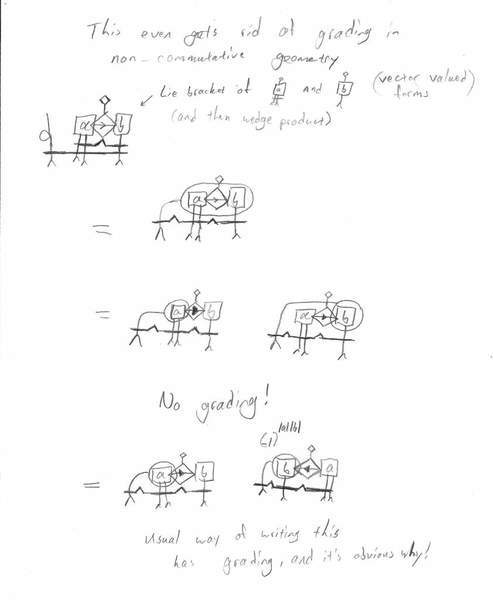 This even gets rid of grading in
non-commutative geometry
Lie bracket of a and b (vector valued)
(and then wedge product) forms
a b
= a b
= a b a b
No grading!
(-1)^|a||b|
= a b b a
Usual way of writing this
has grading, and it's obvious why!